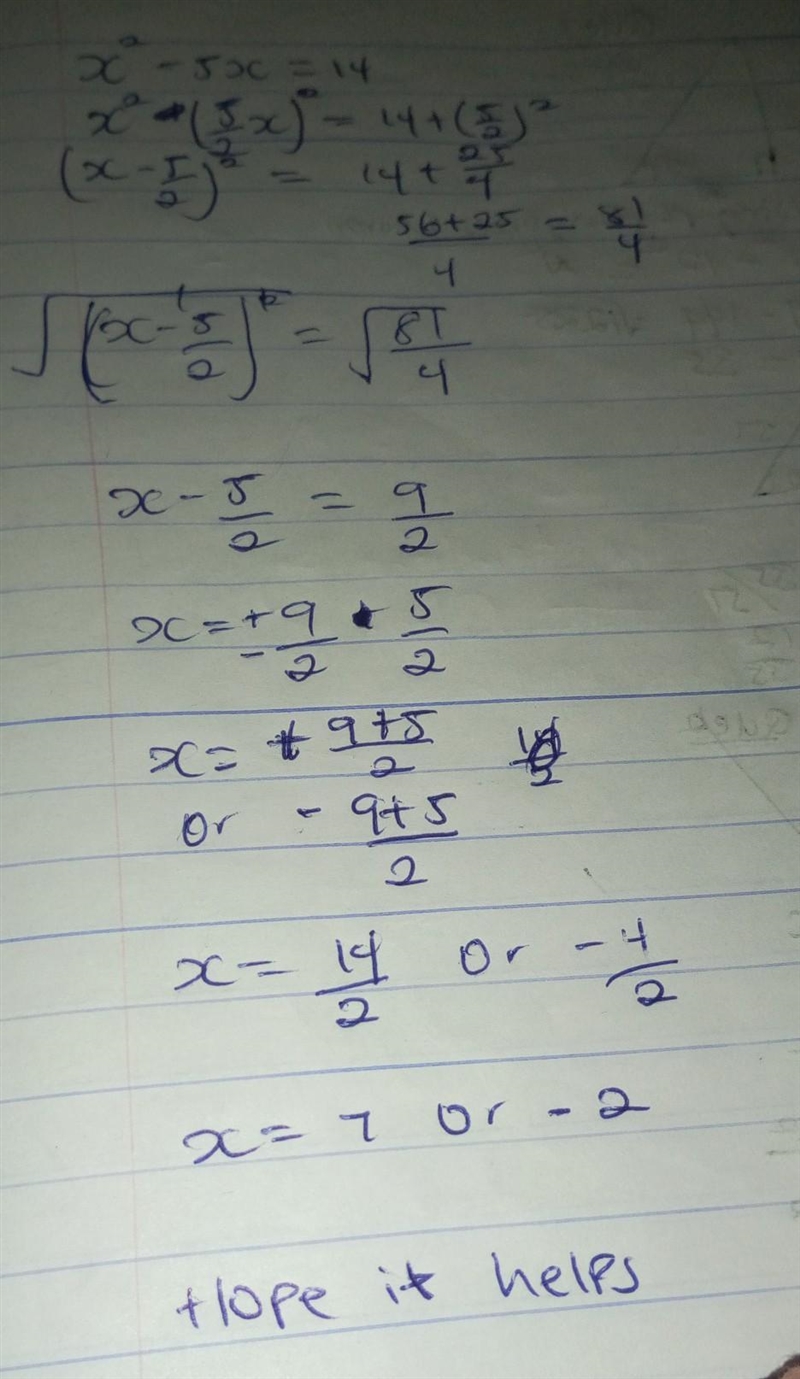 x² - 5x = 14
x² - (5/2 x)² = 14 + (5/2)²
(x - 5/2)² = 14 + 25/4
56+25/4 = 81/4
√(x - 5/2)² = √81/4
x - 5/2 = 9/2
x = ± 9/2 + 5/2
x = + 9+5/2
or - 9+5/2
x = 14/2 or -4/2
x = 7 or - 2
Hope it helps